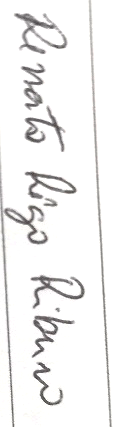 Renato Rigo Ribeiro